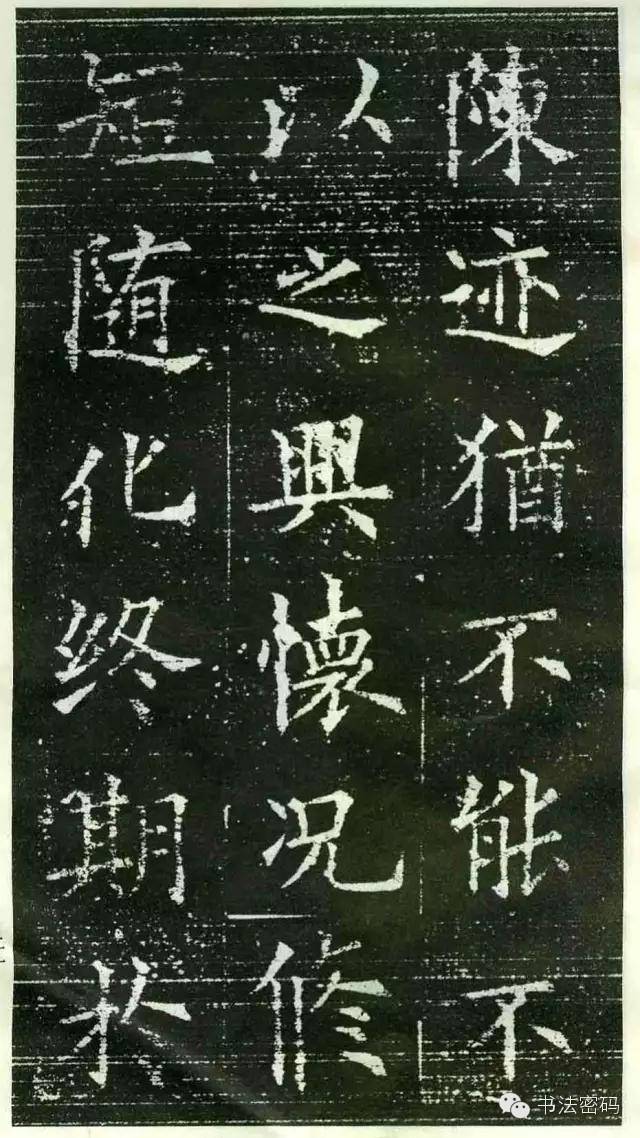 陳迹猶不能不
以之興懷况修
短随化终期於
书法密码